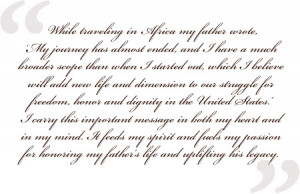 While traveling in Africa my father wrote,
'My journey has almost ended, and I have a much
broader scope than when I started out, which I believe
will add new life and dimension to our struggle for
freedom, honor and dignity in the United States.'
I carry this important message in both my heart and
in my mind. It feeds my spirit and fuels my passion
for honoring my father's life and uplifting his legacy.